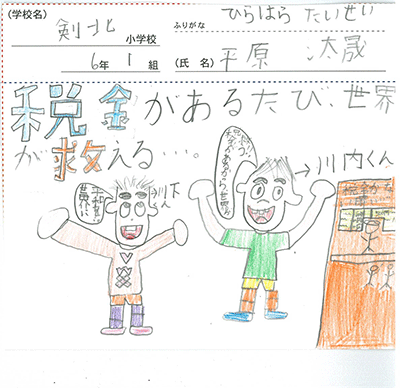 (学校名)
剣北 小学校
6年 1 組
ふりがな
ひらはら たいせい
(氏 名) 平原 汰晟
税金があるたび、世界
が救える…。
平和な
世界に
川下くん
→川内くん